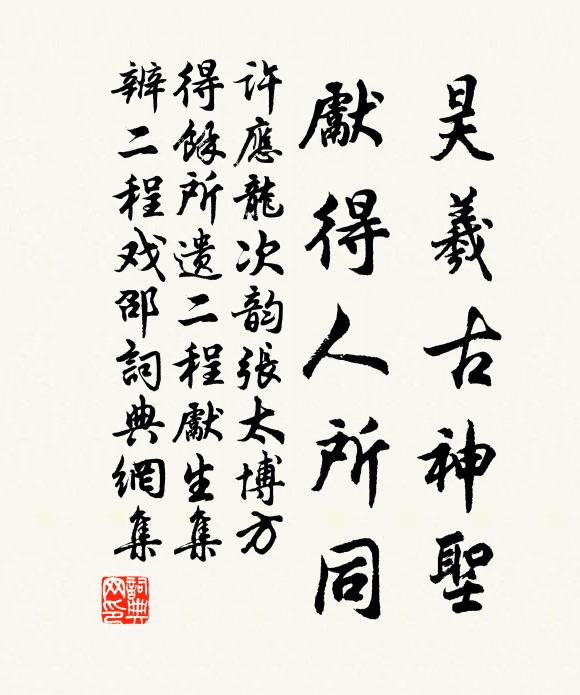 昊羲古神聖
獻得人所同
許應龍次韵張太博方
得餘所遺二程獻生集
辨二程戏邵詞典網集
詞典網印